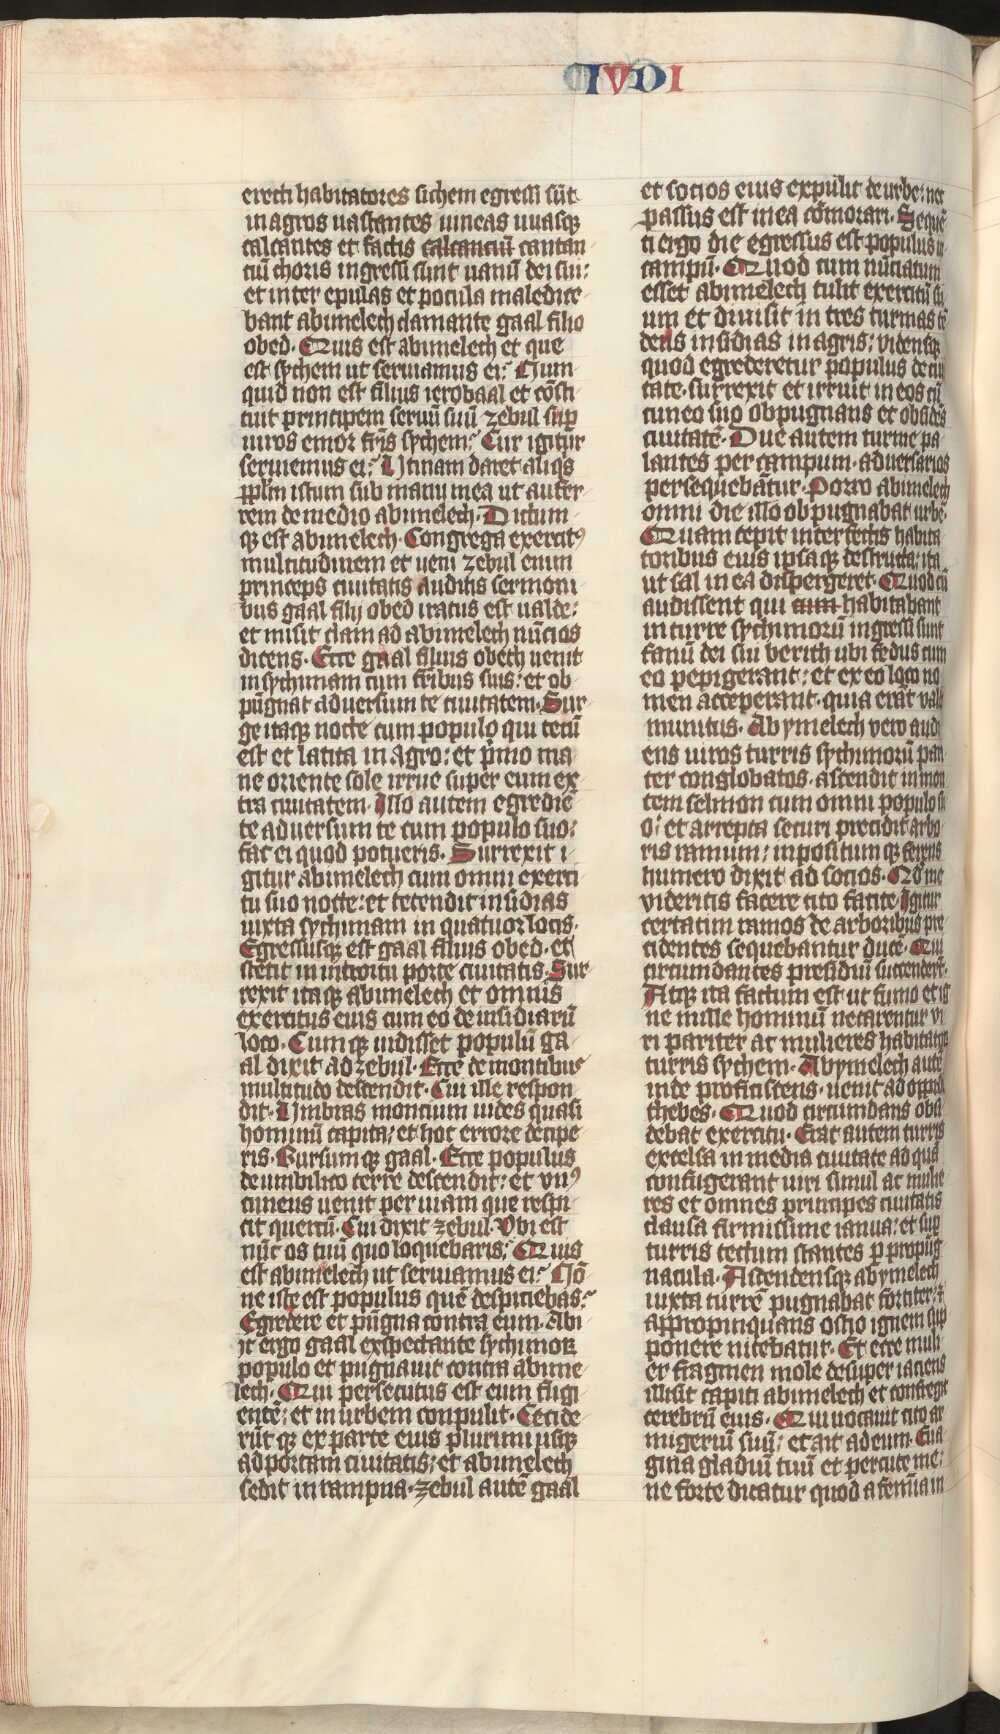 IVDI
erecti habitatores sichem egressi sūt
in agros uastantes uineas uuasqꝫ
calcantes et factis calcanciū cantan
ciū choris ingressi sunt uanū dei sui:
et inter epulas et pocula maledice
bant abimelech clamante gaal filio
obed. Quis est abimelech et que
est sychem ut seruiamus ei? Num
quid non est filius ierobaal et cōsti
tuit principem seruū suū zebul suꝑ
uiros emor fr̄is sychem? Cur igitur
seruiemus ei? Utinam daret aliqͥs
ꝓplm istum sub manu mea ut aufer
rem de medio abimelech. Dictum
qꝫ est abimelech. Congrega exercitꝰ
multitudinem et ueni zebul enim
princeps ciuitatis auditis sermoni
bus gaal filij obed iratus est ualde:
et misit clam ad abimelech nūcios
dicens. Ecce gaal filius obech uenit
in sychimam cum fr̄ibus suis: et ob
pūgnat aduersum te ciuitatem. Sur
ge itaqꝫ nocte cum populo qui tecū
est et latita in agro: et p̄mo ma
ne oriente sole irrue super eum ex
tra ciuitatem. Illo autem egredien
te aduersum te cum populo suo:
fac ei quod potueris. Surrexit i
gitur abimelech cum omni exerci
tu suo nocte: et tetendit insidias
iuxta sychimam in quatuor locis.
Egressusqꝫ est gaal filius obed. et
stetit in introitu porte ciuitatis. Sur
rexit itaqꝫ abimelech et omnis
exercitus eius cum eo de insidiarū
loco. Cumqꝫ uidisset populū ga
al dixit ad zebul. Ecce de montibus
multitudo descendit. Cui ille respon
dit. Umbras moncium uides quasi
hominū capita: et hoc errore decipe
ris. Rursumqꝫ gaal. Ecce populus
de umbilico terre descendit: et vnꝰ
cuneus uenit per uiam que respi
cit quercū. Cui dixit zebul. Vbi est
nūc os tuū quo loquebaris: Quis
est abimelech ut seruiamus ei? Nō
ne iste est populus quē despiciebas?
Egredere et pūgna contra eum. Abi
it ergo gaal exspectante sychimoꝝ
populo et pugnauit contra abime
lech. Qui persecutus est eum fugi
entē: et in urbem conpulit. Cecide
rūtqꝫ ex parte eius plurimi usqꝫ
ad portam ciuitatis: et abimelech
sedit in rampna. zebul autē gaal
et socios eius expulit de urbe: nec
passus est in ea cōmorari. Sequē
ti ergo die egressus est populus in
campū. Quod cum nūciatum
esset abimelech tulit exercitū su
um et diuisit in tres turmas tē
dens insidias in agris: vidensqꝫ
quod egrederetur populus de ciui
tate. surrexit et irruit in eos cū
cuneo suo obpugnans et obsidēs
ciuitatē. Due autem turme pa
lantes per campum. aduersarios
persequebātur. Porro abimelech
omni die illo obpugnabat urbē.
Quam cepit interfectis habita
toribus eius ipsaqꝫ destructa: ita
ut sal in ea dispergeret. Quod cū
audissent qui cum habitabant
in turre sychimorū ingressi sunt
fanū dei sui berith ubi fedus cum
eo pepigerant: et ex eo loco no
men acceperant. quia erāt valde
munitus. Abymelech vero audi
ens uiros turris sychimorū pari
ter conglobatos. ascendit in mon
tem selmon cum omni populo su
o: et arrepta securi precidit arbo
ris ramum: inpositumqꝫ ferens
humero dixit ad socios. Qd̄ me
videritis facere cito facite. Igitur
certatim ramos de arboribus pre
cidentes sequebantur ducē. Qui
circumdantes presidiū succenderūt.
Atqꝫ ita factum est ut fumo et ig
ne mille hominū necarentur vi
ri pariter ac mulieres habitatores
turris sychem. Abymelech autē
inde proficiscens. uenit ad oppidū
thebes. Quod circumdans obsi
debat exercitu. Erat autem turris
excelsa in media ciuitate ad quā
confugerant uiri simul ac mulie
res et omnes principes ciuitatis
clausa firmissime ianua: et suꝑ
turris tectum stantes ꝑ propūg
nacula. Ascendensqꝫ abymelech
iuxta turrē pugnabat fortiter: ⁊
appropinquans ostio ignem sup
ponere nitebatur. Et ecce muli
er fragmen mole desuper iaciens
illisit capiti abimelech et confregit
cerebrū eius. Qui uocauit cito ar
migerum suū: et ait ad eum. Eua
gina gladiū tuū et percute me:
ne forte dicatur quod a femīa in